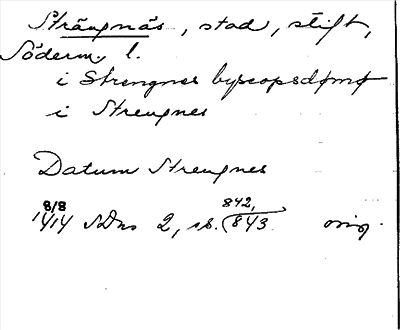 Strängnäs, stad, stift,
Söderm. l.
i Strengnes byscopsdømø
i Strengnes
Datum Strengnes
8/8 842,
1414 SDns 2, s. 843 orig.